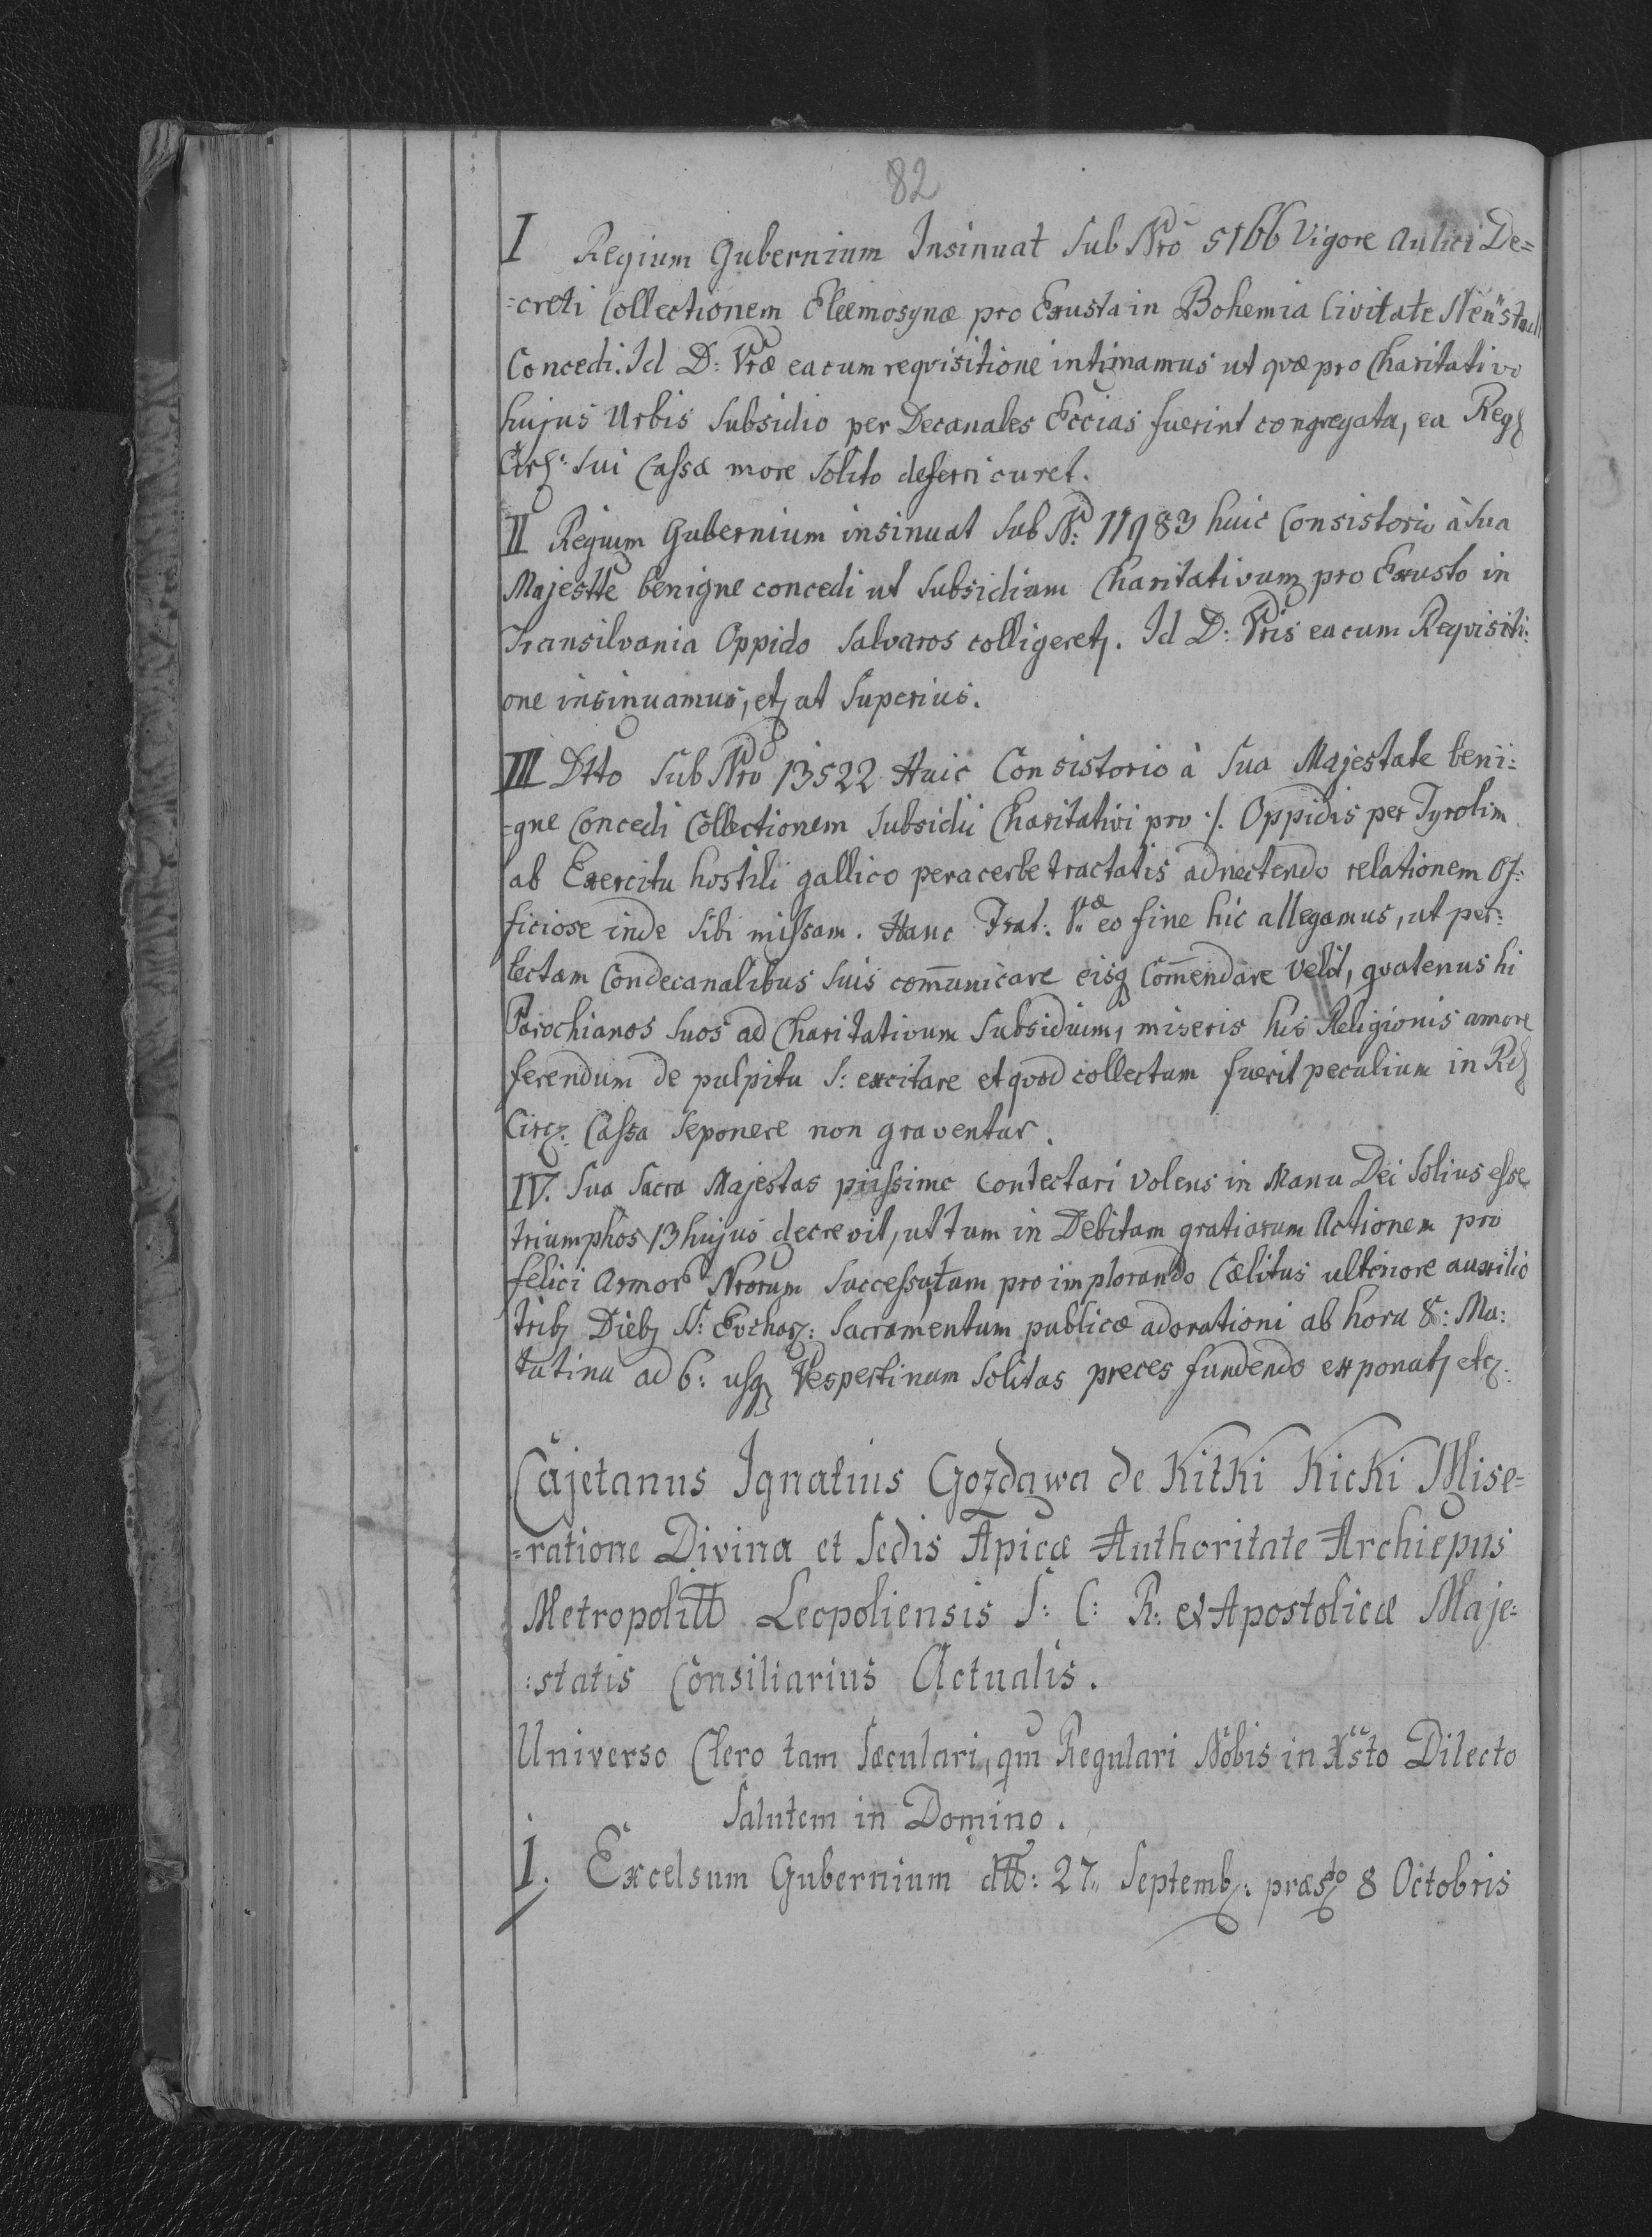 82
I Regium Gubernium Insinuat Sub Nro 5166 Vigore Aulici De=
=creti Collectionem Eleemosynæ pro Exusta in Bohemia Civitate Neüstadl
Concedi. Id D: Vræ ea cum reqvisitione intimamus ut qvæ pro Charitativo
hujus Urbis Subsidio per Decanales Eccias fuerint congregata, ea Reg
Circ: Sui Cassæ more Solito deferri curet.
II Regium Gubernium insinuat Sub N: 11983 huic Consistorio à Sua
Majestte benigne concedi ut Subsidium Charitativum pro Exusto in
Transilvania Oppido Salvaros colligeretz. Id D: Vris ea cum Reqvisiti:
one insinuamus, etz ut Superius.
III Dtto Sub Nro 13522 Huic Consistorio à Sua Majestate beni:
=gne Concedi Collectionem Subsidii Charitativi pro ·/. Oppidis per Tyrolim
ab Exercitu hostili gallico peracerbe tractatis adnectendo relationem Of:
ficiose inde Sibi missam. Hanc Frat: V:æ eo fine hic allegamus, ut per:
lectam Condecanalibus Suis com̄unicare eisq Com̄endare velit, qvatenus hi
Parochianos Suos ad Charitativum Subsidium, miseris his Religionis amore
ferendum de pulpitu S: excitare et qvod collectum fuerit peculium in R
Circ: Cassa Seponere non graventur.
IV. Sua Sacra Majestas piissime Contectari Volens in Manu Dei Solius esse
triumphos 13 hujus decrevit, ut tum in Debitam gratiarum Actionem pro
felici Armor Nrorum Successu, tum pro implorando Cælitus ulteriore auxilio
tribz Diebz S: Euchar: Sacramentum publicæ adorationi ab hora 8: Ma:
tutina ad 6: usqz Vespertinam Solitas preces fundendo exponatz etc:
Cajetanus Ignatius Gozdawa de Kitki Kicki Mise=
=ratione Divina et Sedis Apicæ Authoritate Archiepus
Metropolitt Leopoliensis S: C: R: et Apostolicæ Maje:
:statis Consiliarius Actualis.
Universo Clero tam Sæculari, qm Regulari Nobis in Xsto Dilecto
Salutem in Domino.
I. Excelsum Gubernium dtto: 27. Septemb: præsto 8 Octobris